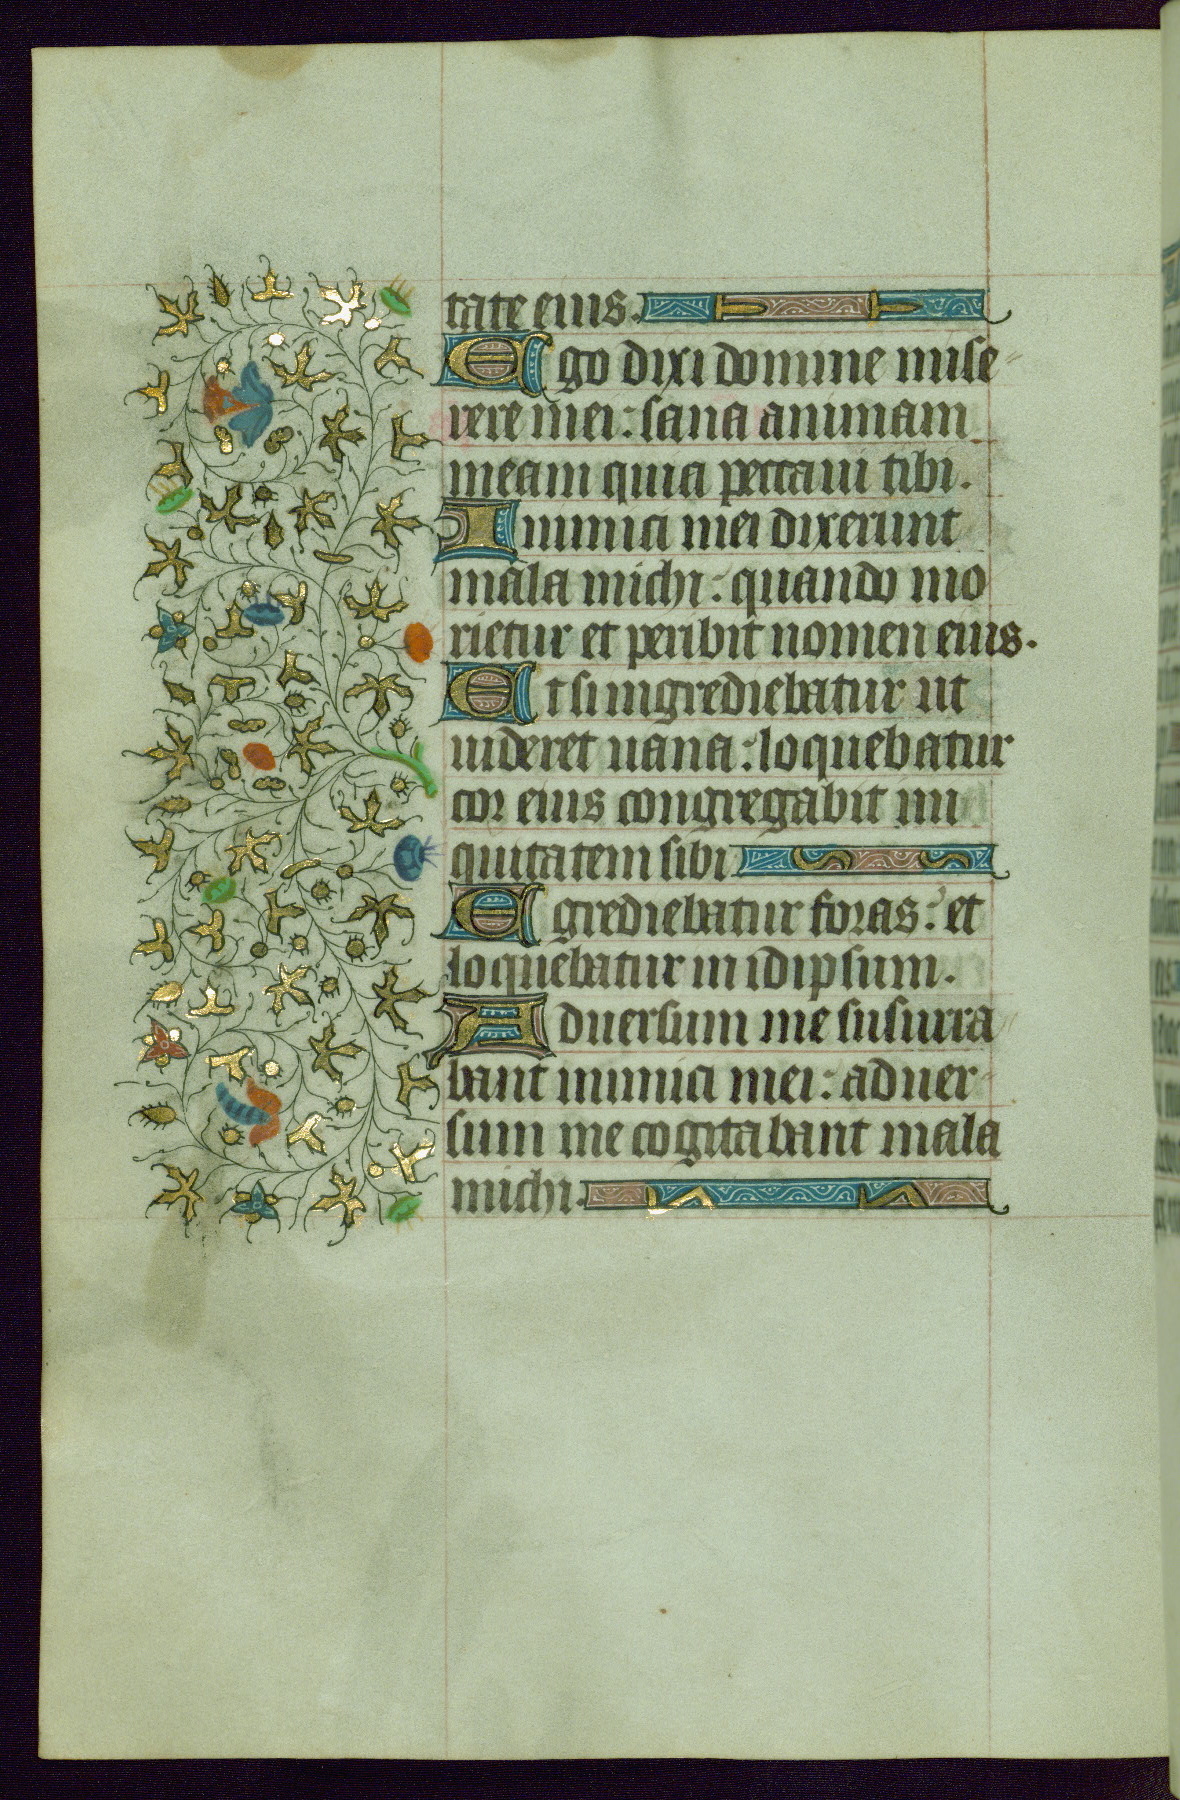 tate eius.
Ego dixi domine mise
rere mei: sana animam
meam quia peccaui tibi.
Inimici mei dixerunt
mala michi: quando mo
rietur et peribit nomen eius.
Et si ingrediebatur ut
uideret uana: loquebatur
cor eius congregabit ini
quitatem sibi
Egrediebatur foras: et
loquebatur in idipsum.
Aduersum me susurra
bant inimici mei: aduer-
sum me cogitabant mala
michi.